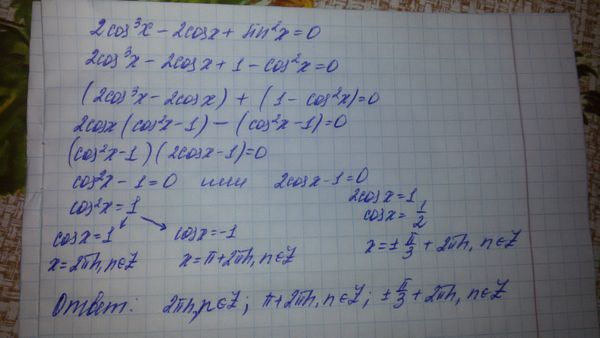 2cos³x − 2cosx + sin²x = 0
2cos³x − 2cosx + 1 − cos²x = 0
(2cos³x − 2cosx) + (1 − cos²x) = 0
2cosx (cos²x − 1) − (cos²x − 1) = 0
(cos²x − 1)(2cosx − 1) = 0
cos²x − 1 = 0 или 2cosx − 1 = 0
cos²x = 1 2cosx = 1
cosx = 1 cosx = −1 cosx = 1/2
x = 2πn, n∈Z x = π + 2πn, n∈Z x = ± π/3 + 2πn, n∈Z
Ответ: 2πn, n∈Z; π + 2πn, n∈Z; ± π/3 + 2πn, n∈Z